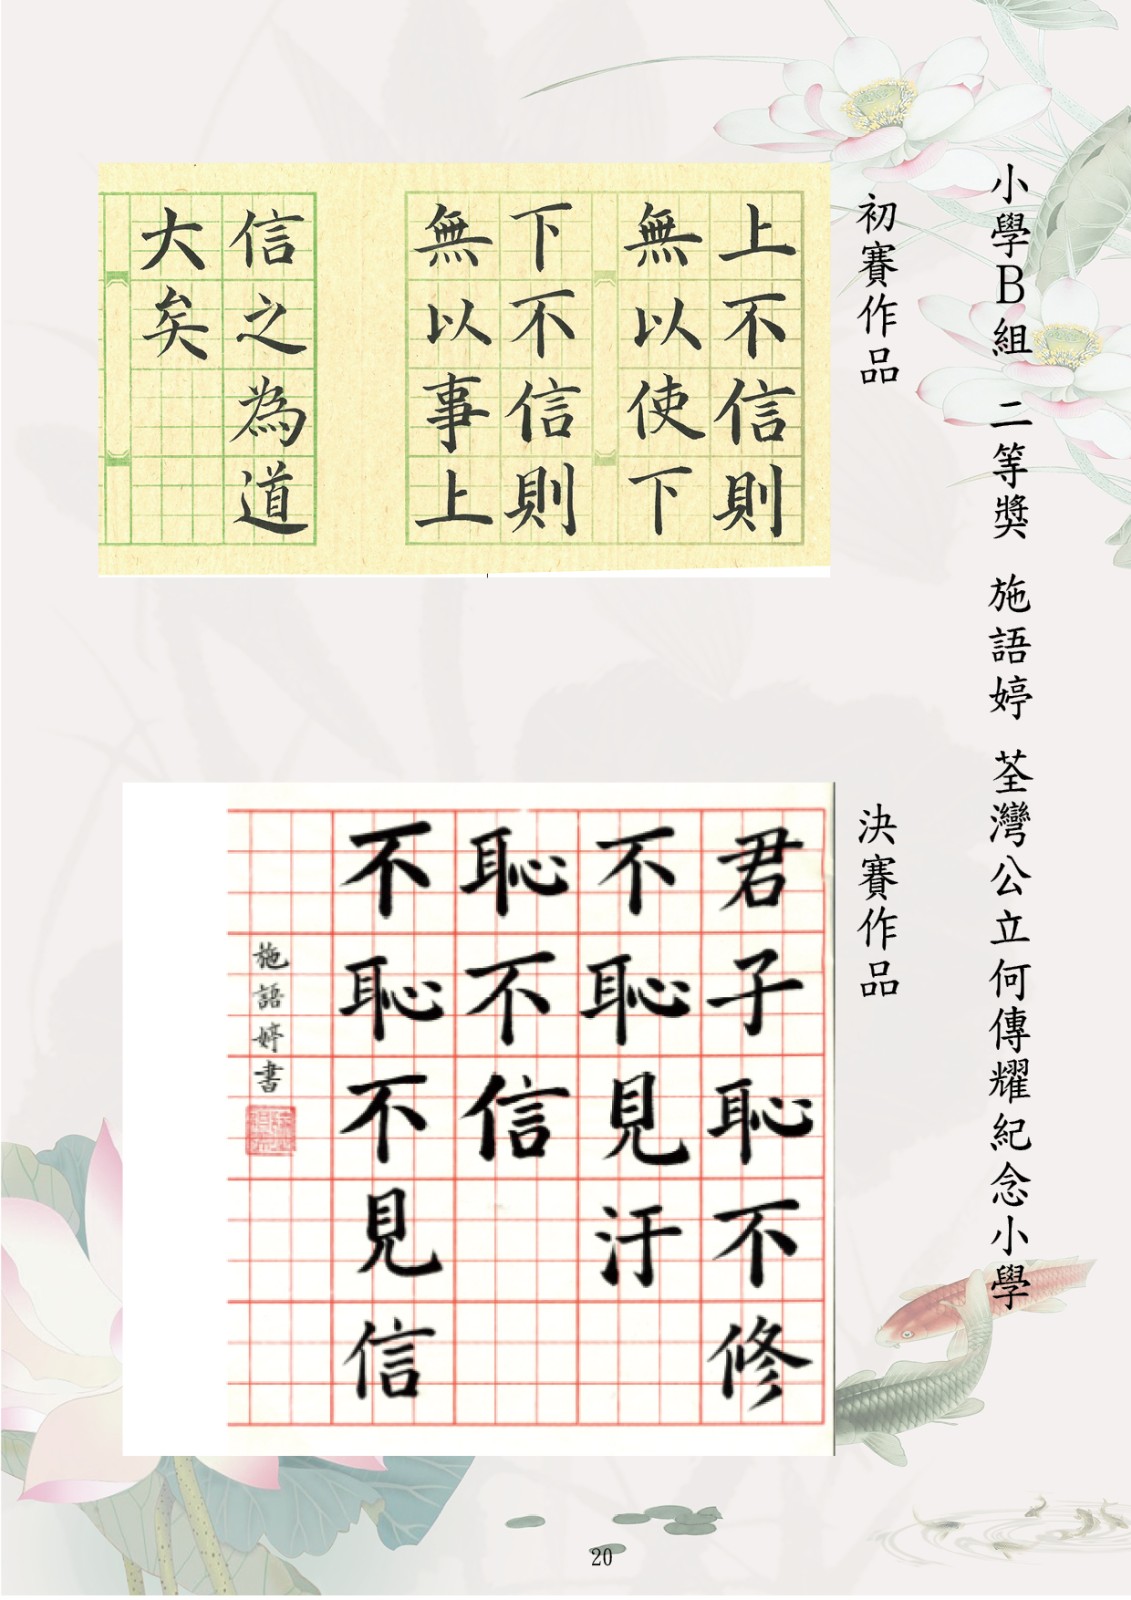 小學B組 二等獎 施語婷 荃灣公立何傳耀紀念小學
初賽作品
上不信則
無以使下
下不信則
無以事上
信之為道
大矣
決賽作品
君子恥不修
不恥見汙
恥不信
不恥不見信
施語婷書
20